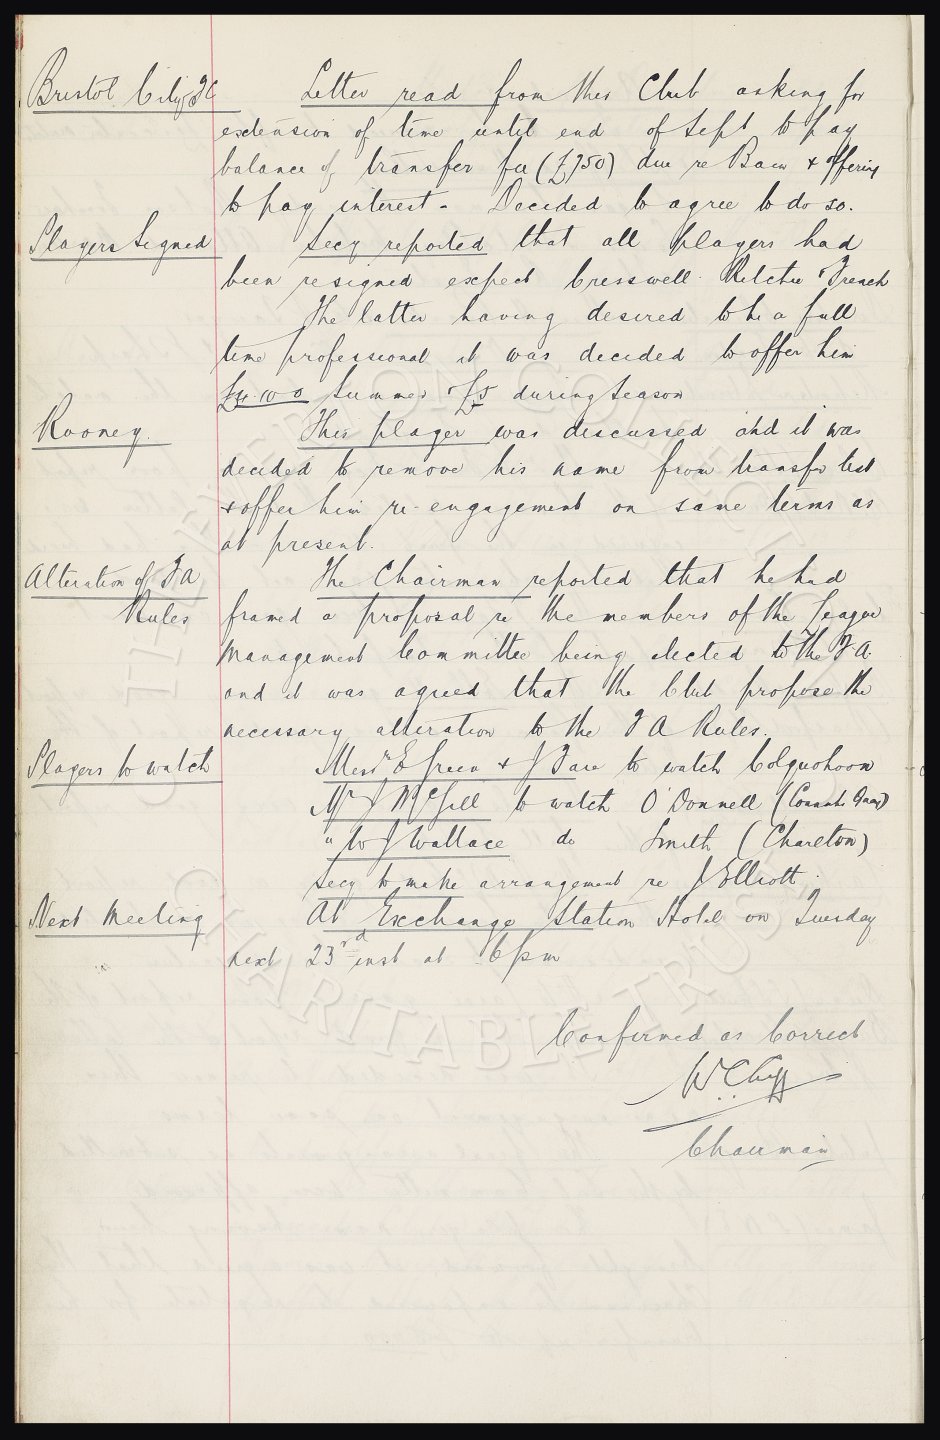 Bristol City FC Letter read from this Club asking for
extension of time until end of Sept to pay
balance of transfer fee (£750) due re Bain & offering
to pay interest - Decided to agree to do so.
Players Signed Secy reported that all players had
been resigned expect Cresswell Ritchie & French
The latter having desired to be a full
time professional it was decided to offer him
£4.10.0 Summer & £5 during Season
Rooney. This player was discussed and it was
decided to remove his name from transfer list
& offer him re-engagement on same terms as
at present.
Alteration of FA The Chairman reported that he had
Rules framed a proposal re the members of the League
Management Committee being elected to the F.A.
and it was agreed that the Club propose the
necessary alteration to the F A Rules.
Players to watch Messrs E Green & J Fare to watch Colquohoon
Mr J McGill to watch O'Donnell (Connahs Quay)
" W J Wallace do Smith (Charlton)
Secy to make arrangement re J Elliott.
Next Meeting At Exchange Station Hotel on Tuesday
next 23rd inst at 6pm
Confirmed as Correct
W.C. Cuff
Chairman
THE EVERTON COLLECTION CHARITABLE TRUST